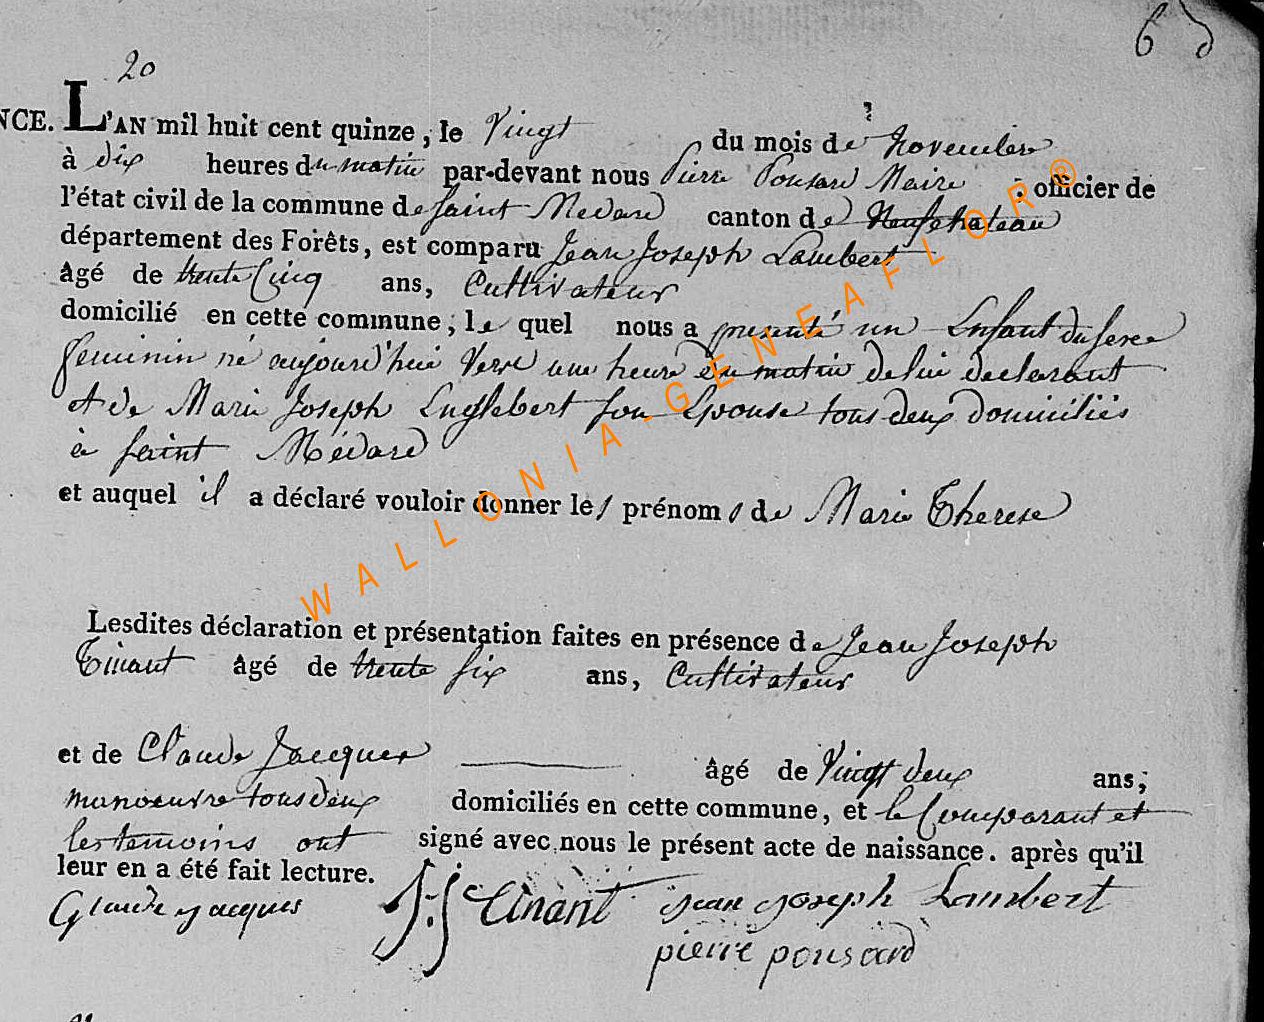 6
20
NCE. L'AN mil huit cent quinze, le Vingt du mois de Novembre
à dix heures du matin par-devant nous Pierre Pousard Maire officier de
l'état civil de la commune de Saint Medard canton de Neufchateau
département des Forêts, est comparu Jean Joseph Lambert
âgé de trente Cinq ans, Cultivateur
domicilié en cette commune, le quel nous a presenté un Enfant du sexe
feminin né aujourd'hui vers une heure du matin de lui declarant
et de Marie Joseph Englebert son Epouse tous deux domiciliés
à Saint Médard
et auquel il a déclaré vouloir donner les prénoms de Marie Therese
Lesdites déclaration et présentation faites en présence de Jean Joseph
Tinant âgé de trente six ans, Cultivateur
et de Claude Jacques âgé de Vingt deux ans,
manoeuvre tous deux domiciliés en cette commune, et le Comparant et
les temoins ont signé avec nous le présent acte de naissance. après qu'il
leur en a été fait lecture.
Glaude jacques J: J Tinant jean joseph Lambert
pierre pousard
WALLONIA-GENEAFLOR®